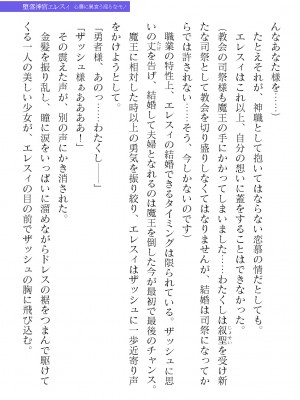 堕落神官エレスィ 心髄に巣食う淫らなモノ
んなあなた様を……）
　たとえそれが、神職として抱いてはならない恋慕の情だとしても。
　エレスィはこれ以上、自分の想いに蓋をすることはできなかった。
（教会の司祭様も魔王の手にかかってしまいました……わたくしは叙聖を受け新
たな司祭として教会を切り盛りしなくてはなりませんが、結婚は司祭になってか
らでは許されない……そう、今しかないのです）
　職業の特性上、エレスィの結婚できるタイミングは限られている。ザッシュに思
いの丈を告げ、結婚して夫婦となれるのは魔王を倒した今が最初で最後のチャンス。
　魔王に相対した時以上の勇気を振り絞り、エレスィはザッシュに一歩近寄り声
をかけようとして。
「勇者様、あのっ……わたくし――」
「ザッシュ様ぁあああ！」
　その震えた声が、別の声にかき消された。
　金髪を振り乱し、瞳に涙をいっぱいに溜めながらドレスの裾をつまんで駆けて
くる一人の美しい少女が、エレスィの目の前でザッシュの胸に飛び込む。
じょせい